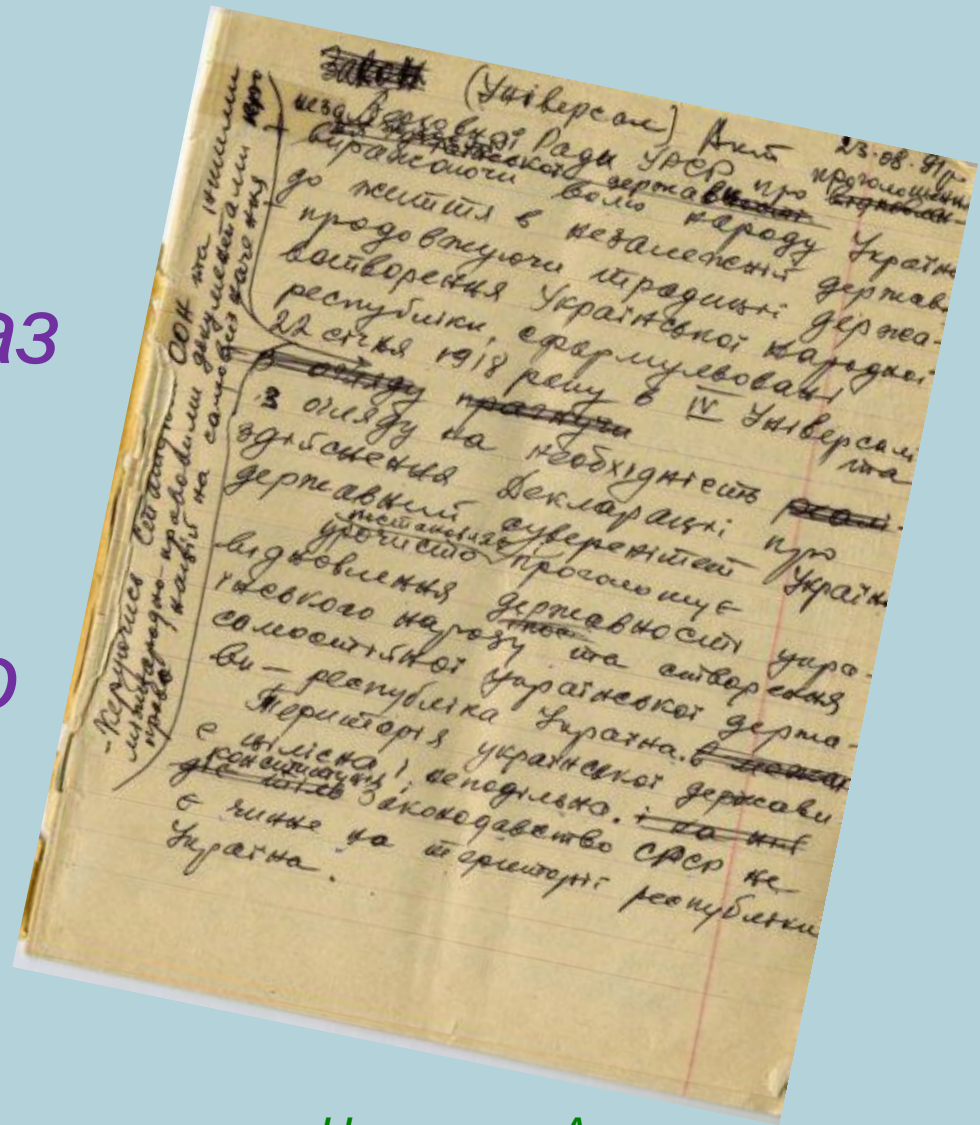 аз
о
Закон (Універсал) Акт 23.08.91 р.
Верховної Ради УРСР про проголошення
української держав
виражаючи волю народу України
до життя в незалежній державі
продовжуючи традиції держа-
вотворення Української народної
республіки, сформульовані
22 січня 1918 року в IV Універсалі
та
З огляду прагнучи
з огляду на необхідність реалі-
здійснення Декларації про
державний суверенітет України
урочисто проголошує
відновлення державності укра-
їнського народу та створення
самостійної української держа-
ви – республіка Україна. в межах
Територія української держави
є цілісна і неподільна. і на ній
діє тільки конституція, Законодавство СРСР не
є чинне на території республіки
Україна.
- Керуючись Статутом ООН та іншими
міжнародно-правовими документами про
право націй на самовизначення